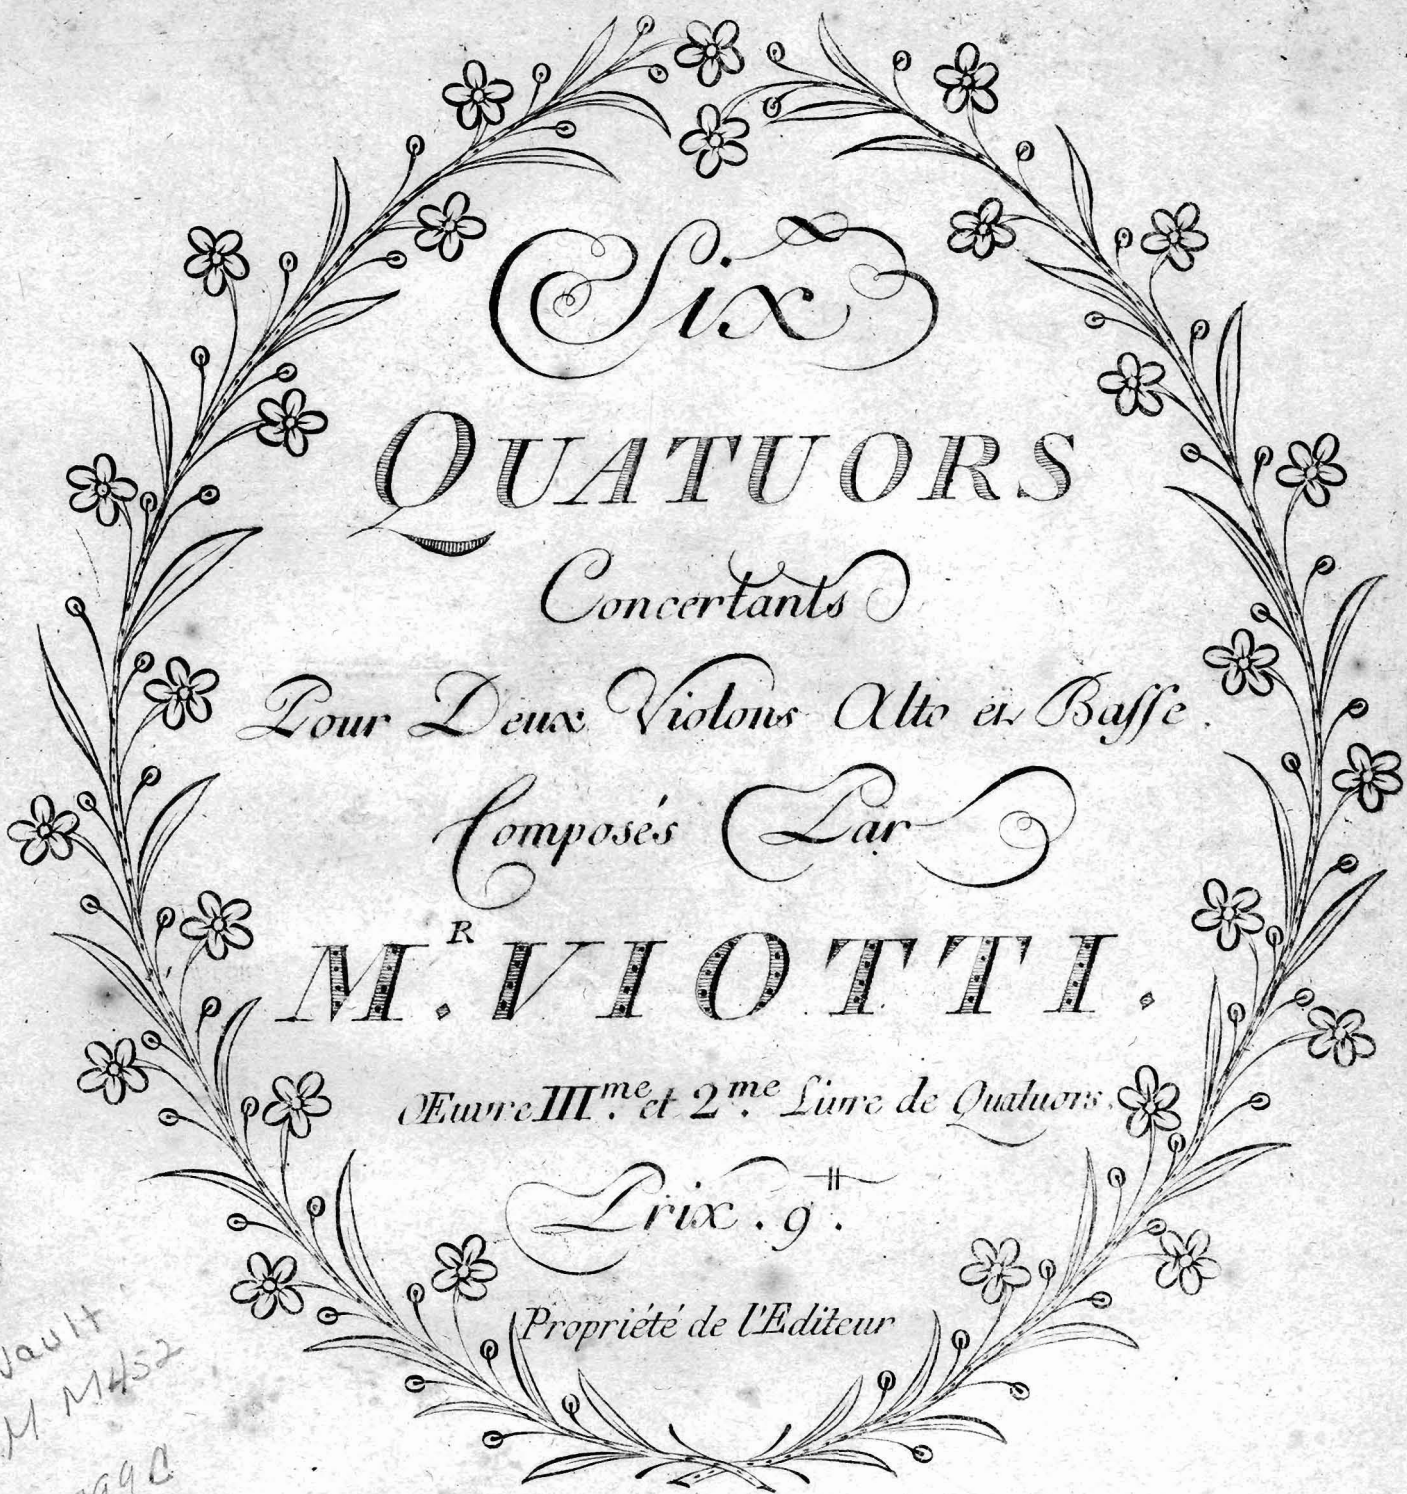 Six
QUATUORS
Concertants
Pour Deux Violons Alto et Basse.
Composés Par
M.R VIOTTI.
Œuvre IIIme. et 2me. Livre de Quatuors.
Prix. 9tt.
Propriété de l'Editeur
Vault
M M452